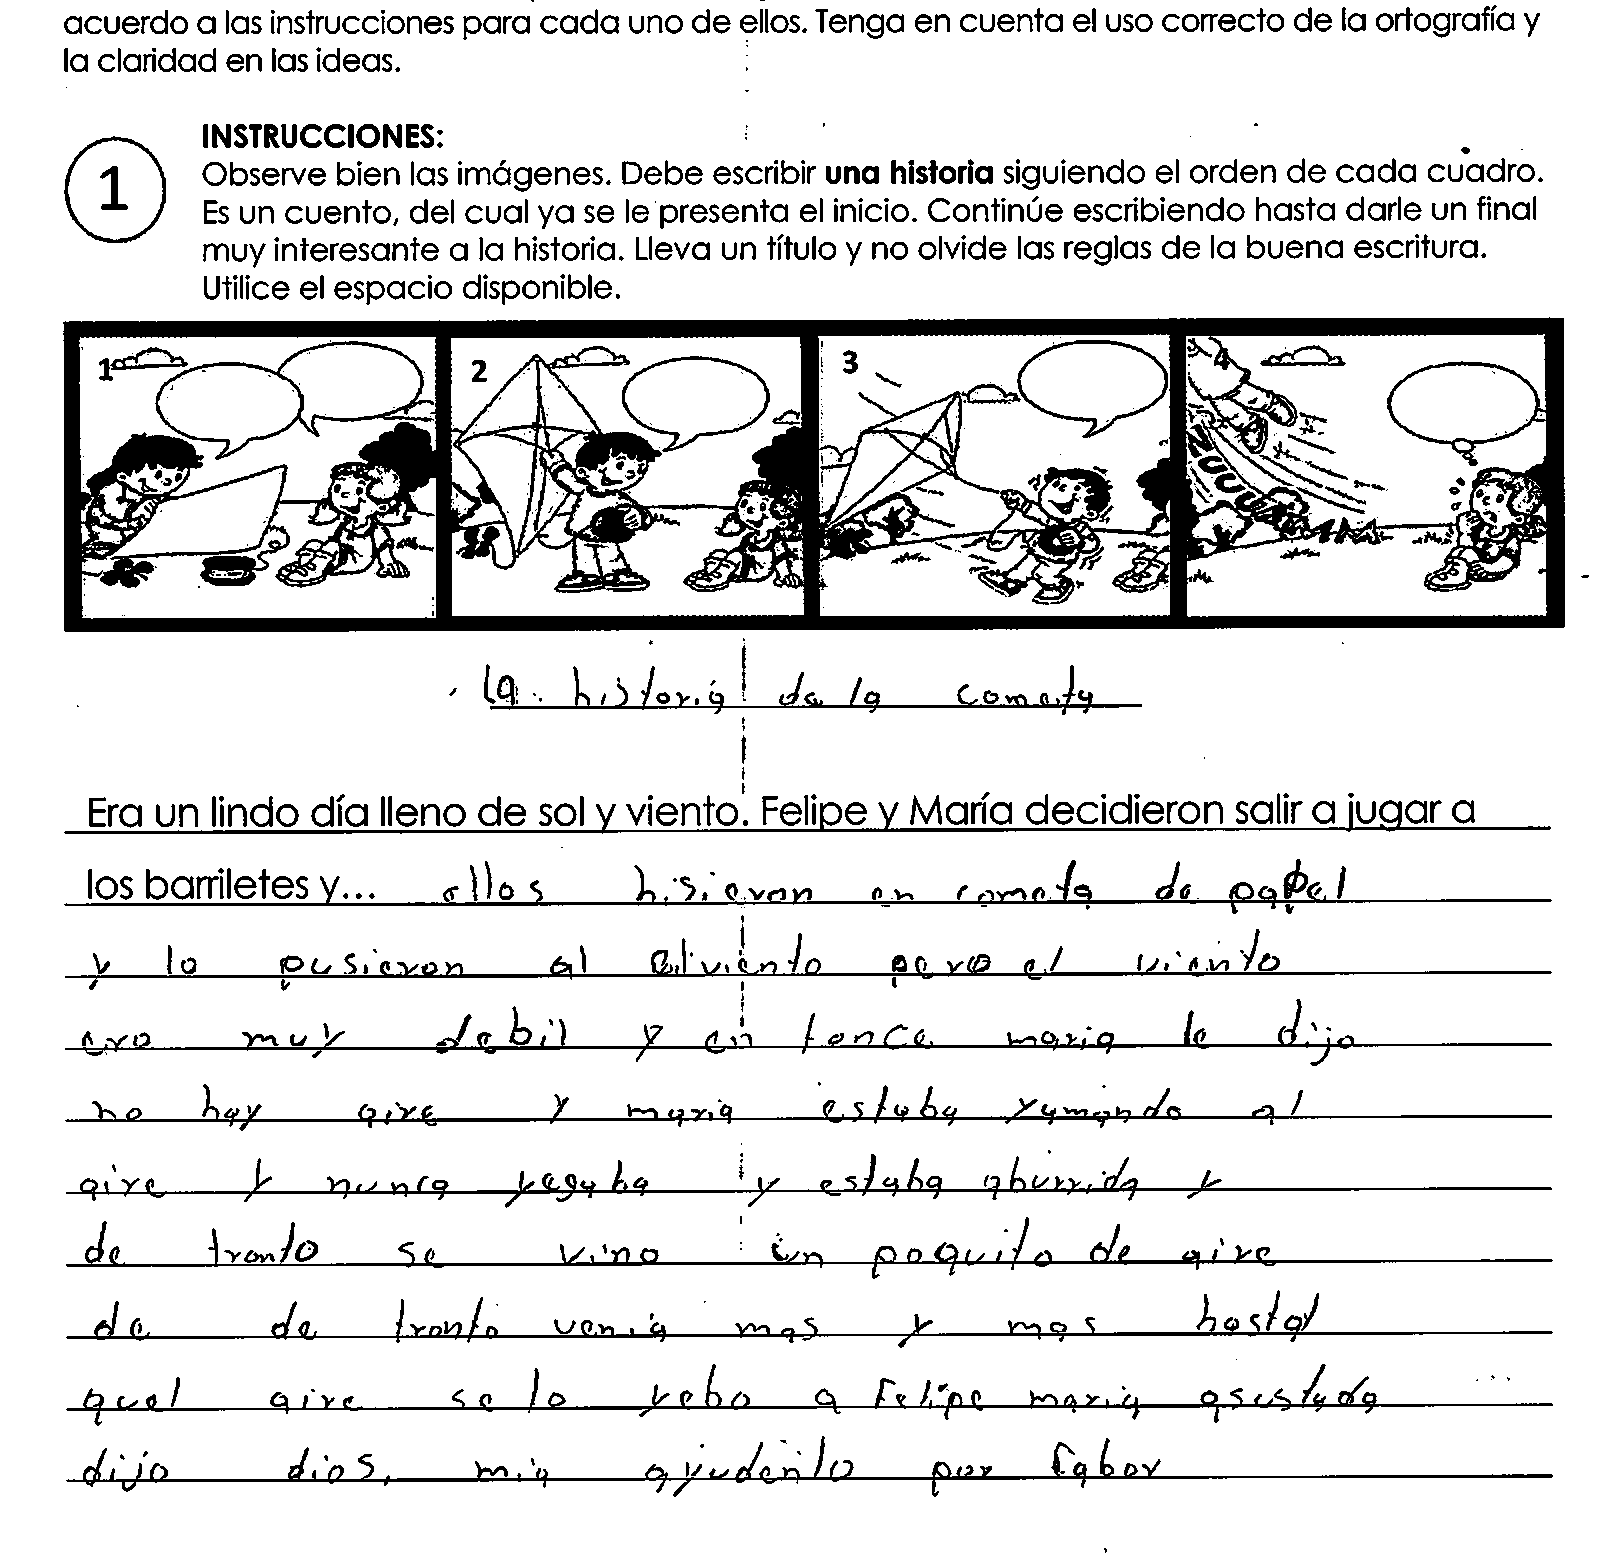 acuerdo a las instrucciones para cada uno de ellos. Tenga en cuenta el uso correcto de la ortografía y
la claridad en las ideas.
1
INSTRUCCIONES:
Observe bien las imágenes. Debe escribir una historia siguiendo el orden de cada cuadro.
Es un cuento, del cual ya se le presenta el inicio. Continúe escribiendo hasta darle un final
muy interesante a la historia. Lleva un título y no olvide las reglas de la buena escritura.
Utilice el espacio disponible.
1 2 3 4
la historia de la cometa
Era un lindo día lleno de sol y viento. Felipe y María decidieron salir a jugar a
los barriletes y... ellos hisieron en cometa de papel
y lo pusieron al viento pero el viento
ero muy debil y en tonce maria le dijo
no hay aire y maria estaba yamando al
aire y nunca yegaba y estaba aburrida y
de tronto se vino un poquito de aire
de de tronto venia mas y mas hasta
quel aire se lo yebo a Felipe maria asustada
dijo dios, mia ayudenlo por fabor